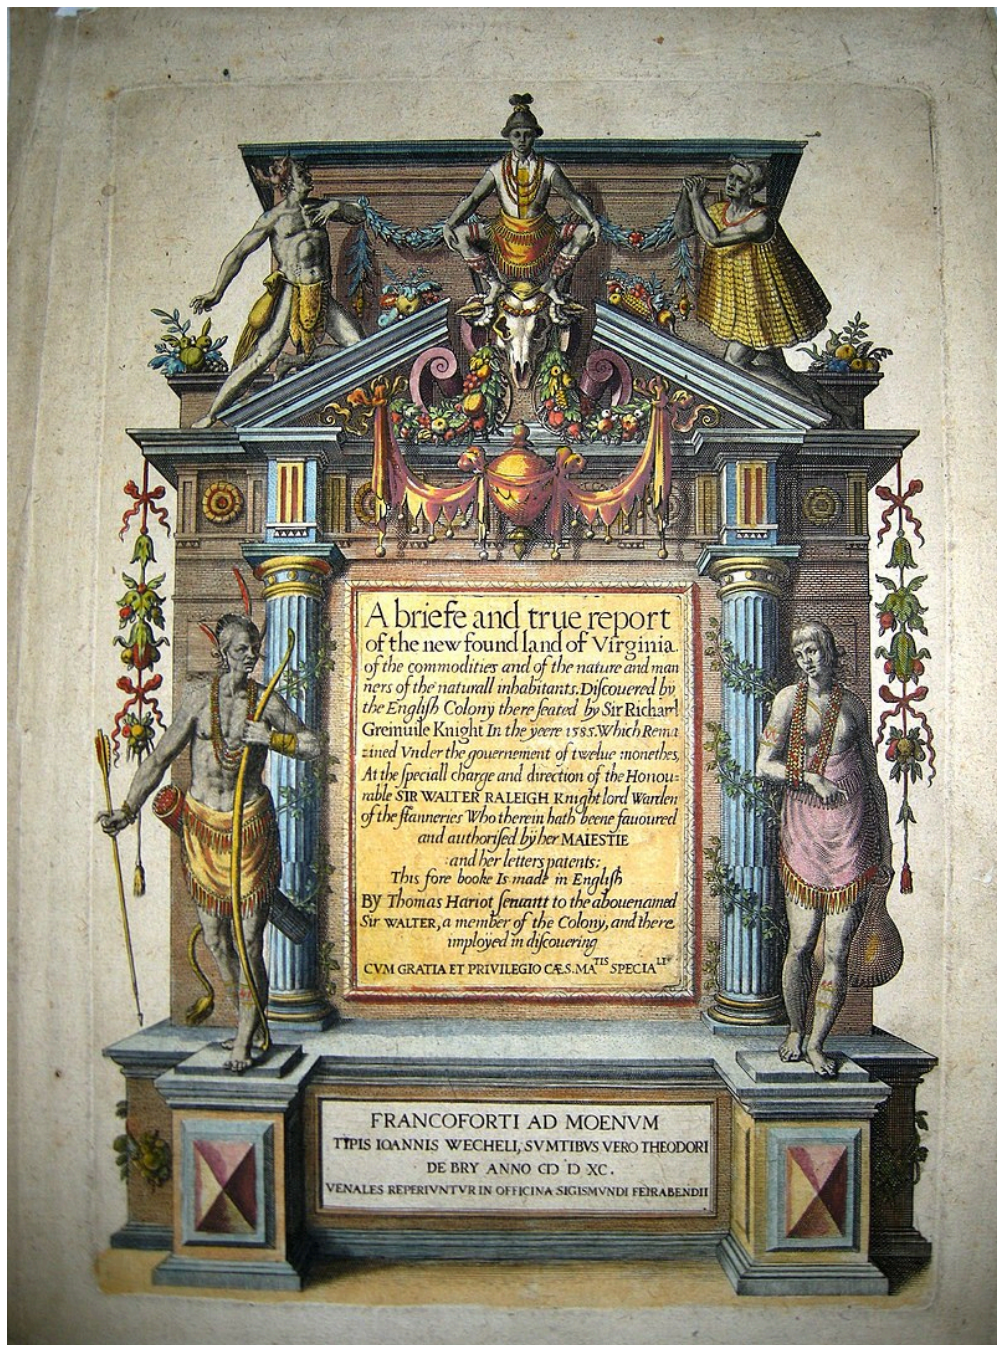 A briefe and true report
of the new found land of Virginia.
of the commodities and of the nature and man
ners of the naturall inhabitants. Diſcouered by
the Engliſh Colony there ſeated by Sir Richard
Greinuile Knight In the yeere 1585. Which Rema
ined Vnder the gouernement of twelue monethes,
At the ſpeciall charge and direction of the Honou-
rable SIR WALTER RALEIGH Knight lord Warden
of the ſtanneries Who therein hath beene fauoured
and authoriſed by her MAIESTIE
:and her letters patents:
This fore booke Is made in Engliſh
By Thomas Hariot ſeruant to the abouenamed
Sir WALTER, a member of the Colony, and there
imployed in diſcouering
CVM GRATIA ET PRIVILEGIO CÆS. MA^TIS SPECIA^LI
FRANCOFORTI AD MOENVM
TIPIS IOANNIS WECHELI, SVMTIBVS VERO THEODORI
DE BRY ANNO CIƆ D XC.
VENALES REPERIVNTVR IN OFFICINA SIGISMVNDI FEIRABENDII